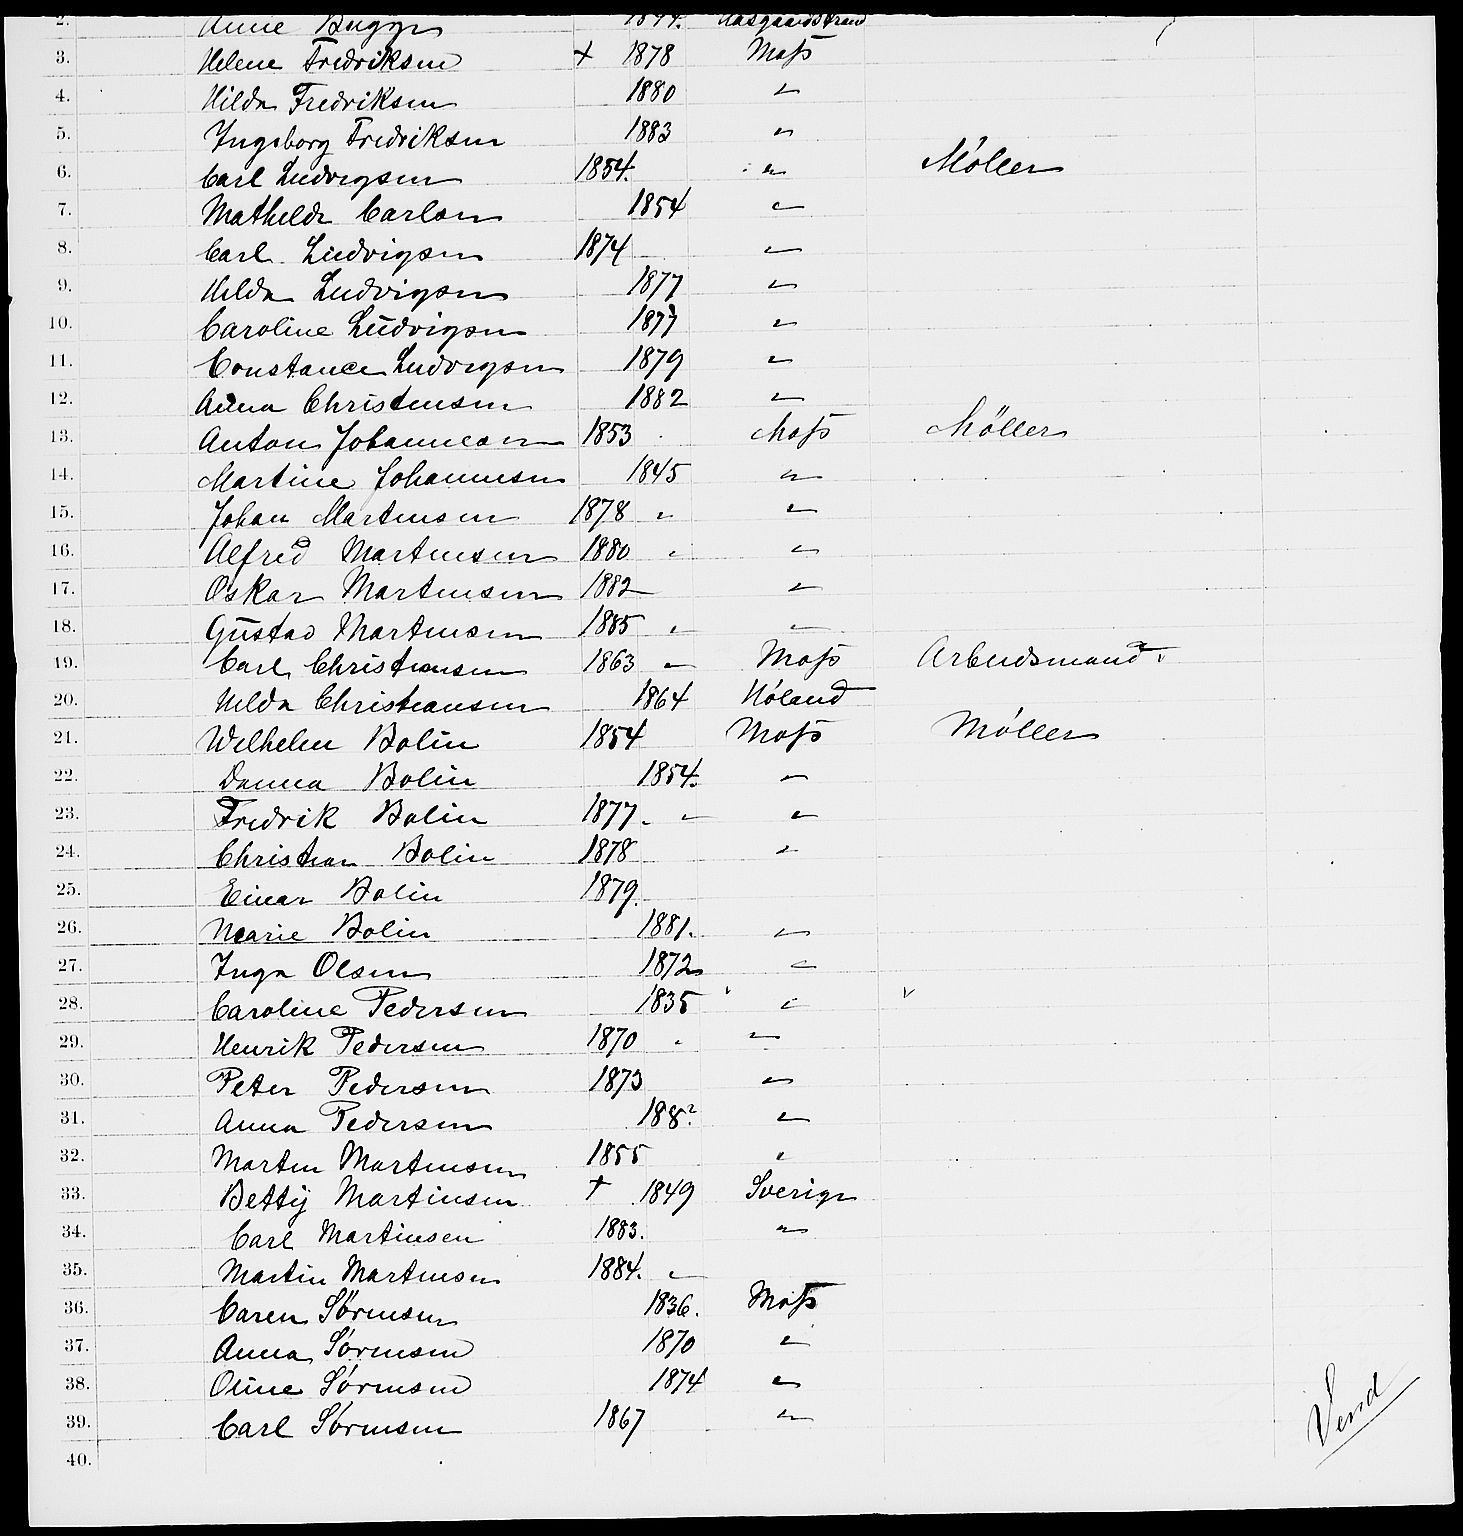 2. Anne Bugge 1844. Aasgaardstrand
3. Helene Fredriksen + 1878 Moss
4. Hilda Fredriksen 1880 "
5. Ingeborg Fredriksen 1883 "
6. Carl Ludvigsen 1854. " Møller
7. Mathilde Carlsen 1854 "
8. Carl Ludvigsen 1874 "
9. Hilda Ludvigsen 1877 "
10. Caroline Ludvigsen 1877 "
11. Constance Ludvigsen 1879 "
12. Anna Christensen 1882 "
13. Anton Johannesen 1853 Moss Møller
14. Martine Johannesen 1845 "
15. Johan Martinsen 1878 " "
16. Alfred Martinsen 1880 " "
17. Oskar Martinsen 1882 "
18. Gustav Martinsen 1885 " "
19. Carl Christiansen 1863 " Moss Arbeidsmand
20. Hilda Christiansen 1864 Høland
21. Wilhelm Bolin 1854 Moss Møller
22. Danna Bolin 1854. "
23. Fredrik Bolin 1877 " " "
24. Christian Bolin 1878 "
25. Einar Bolin 1879.
26. Marie Bolin 1881. "
27. Inga Olsen 1872 "
28. Caroline Pedersen 1835 "
29. Henrik Pedersen 1870 " "
30. Peter Pedersen 1873 "
31. Anna Pedersen 188? "
32. Martin Martinsen 1855 "
33. Betty Martinsen † 1849 Sverige
34. Carl Martinsen 1883. "
35. Martin Martinsen 1884. "
36. Caren Sørensen 1836. Moss
37. Anna Sørensen 1870 "
38. Oline Sørensen 1874 "
39. Carl Sørensen 1867 "
40.
Vend